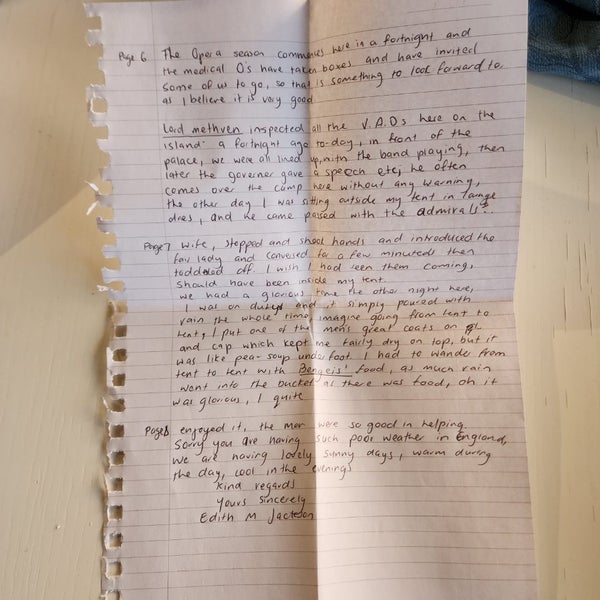 Page 6 The Opera season commences here in a fortnight and
the medical Os have taken boxes and have invited
some of us to go, so that is something to look forward to.
as I believe it is very good.
Lord methven inspected all the V.A.Ds here on the
island a fortnight ago to-day, in front of the
palace, we were all lined up, with the band playing, then
later the governer gave a speech etc, he often
comes over the camp here without any warning,
the other day I was sitting outside my tent in
dres, and he came passed with the admirals
Page 7 wife, stopped and shook hands and introduced the
fair lady and conversed for a few minutes then
toddled off. I wish I had seen them coming,
should have been inside my tent.
we had a glorious time the other night here,
I was on duty and it simply poured with
rain the whole time, imagine going from tent to
tent, I put one of the mens great coats on
and cap which kept me fairly dry on top, but it
was like pea-soup underfoot I had to wander from
tent to tent with Bengeis' food, as much rain
went into the bucket as there was food, oh it
was glorious, I quite
Page 8 enjoyed it, the men were so good in helping.
Sorry you are having such poor weather in England,
we are having lovely sunny days, warm during
the day, cool in the evenings
kind regards
yours sincerely
Edith M Jackson